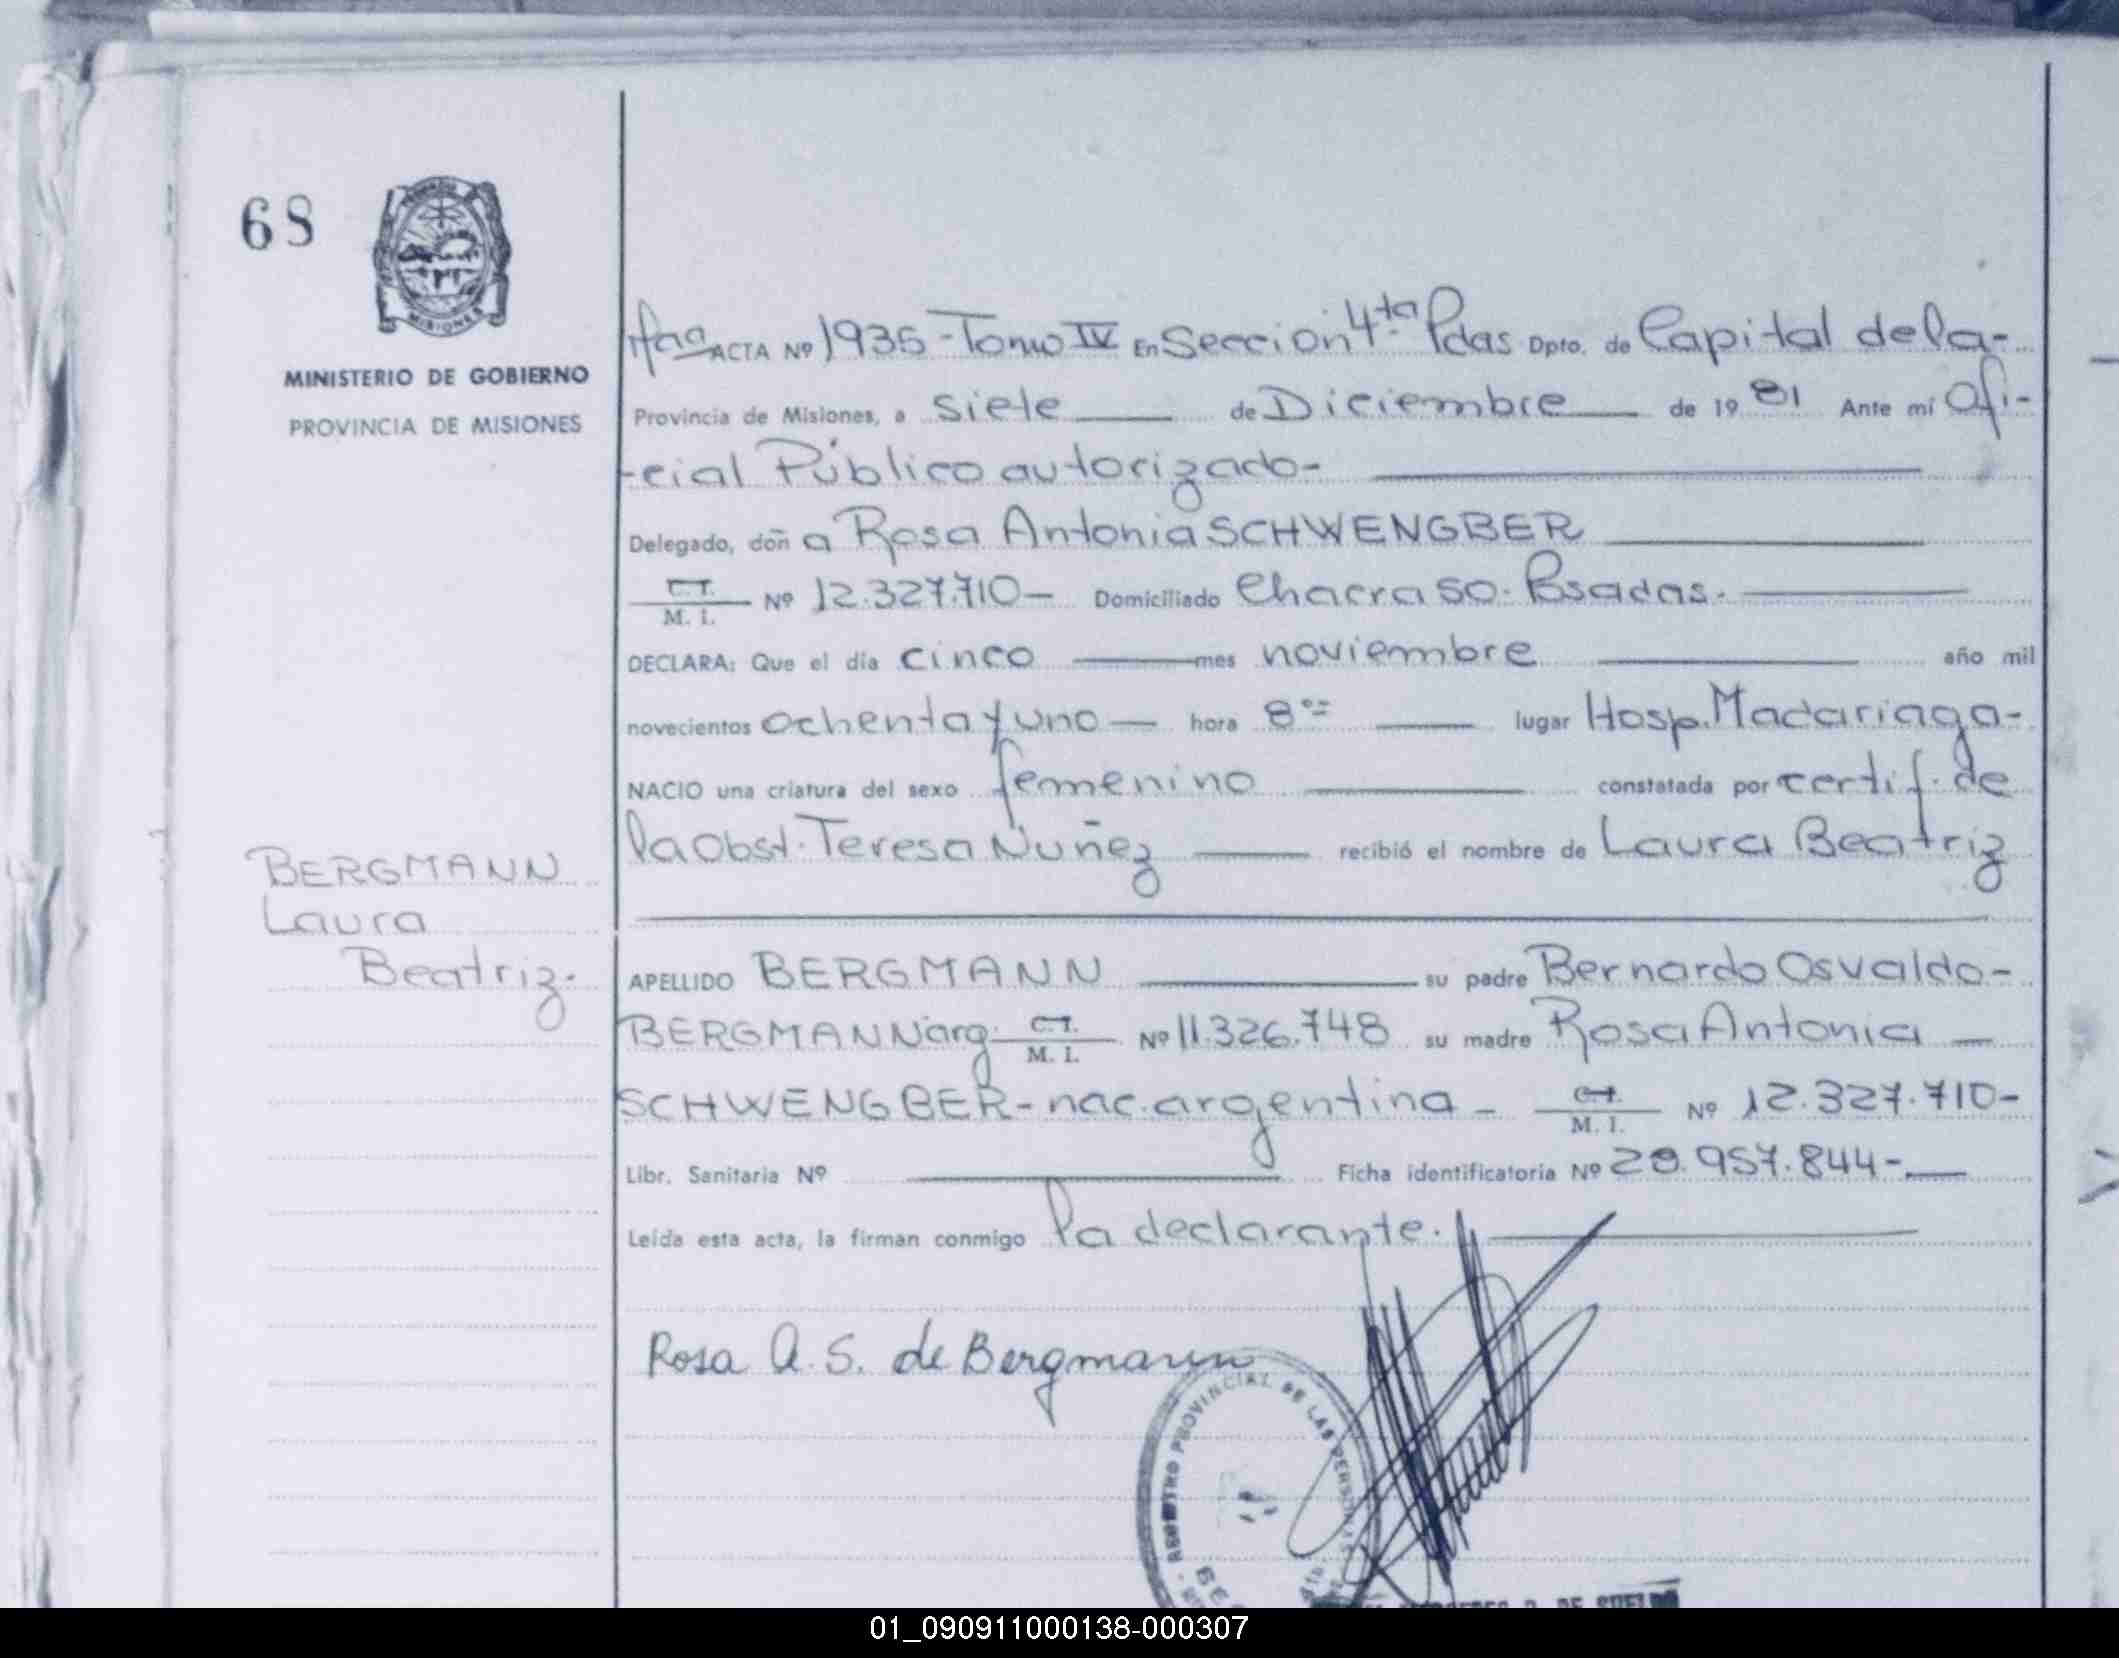 68
MISIONES
MINISTERIO DE GOBIERNO
PROVINCIA DE MISIONES
BERGMANN
Laura
Beatriz.
ACTA Nº 1935 - Tomo IV En Sección 4ta Pdas Dpto. de Capital de la-
Provincia de Misiones, a siete de Diciembre de 1981 Ante mí Ofi-
-cial Público autorizado-
Delegado, doña Rosa Antonia SCHWENGBER
C.I.
M. I. Nº 12.327.710- Domiciliado Chacra 50. Posadas.
DECLARA: Que el día cinco mes noviembre año mil
novecientos ochenta y uno hora 8 lugar Hosp. Madariaga-
NACIO una criatura del sexo femenino constatada por certif. de
la Obst. Teresa Nuñez recibió el nombre de Laura Beatriz
APELLIDO BERGMANN su padre Bernardo Osvaldo-
BERGMANN arg. C.I.
M. I. Nº 11.326.748 su madre Rosa Antonia
SCHWENGBER - nac. argentina - C.I.
M. I. Nº 12.327.710-
Libr. Sanitaria Nº Ficha identificatoria Nº 28.957.844-
Leída esta acta, la firman conmigo la declarante.
Rosa A. S. de Bergmann
PROVINCIAL DE LAS
DE SUELDO
01_090911000138-000307